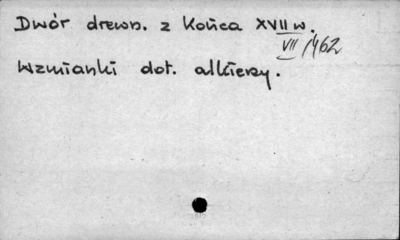 Dwór drewn. z końca XVII w.
VII/462
Wzmianki dot. alkierzy.